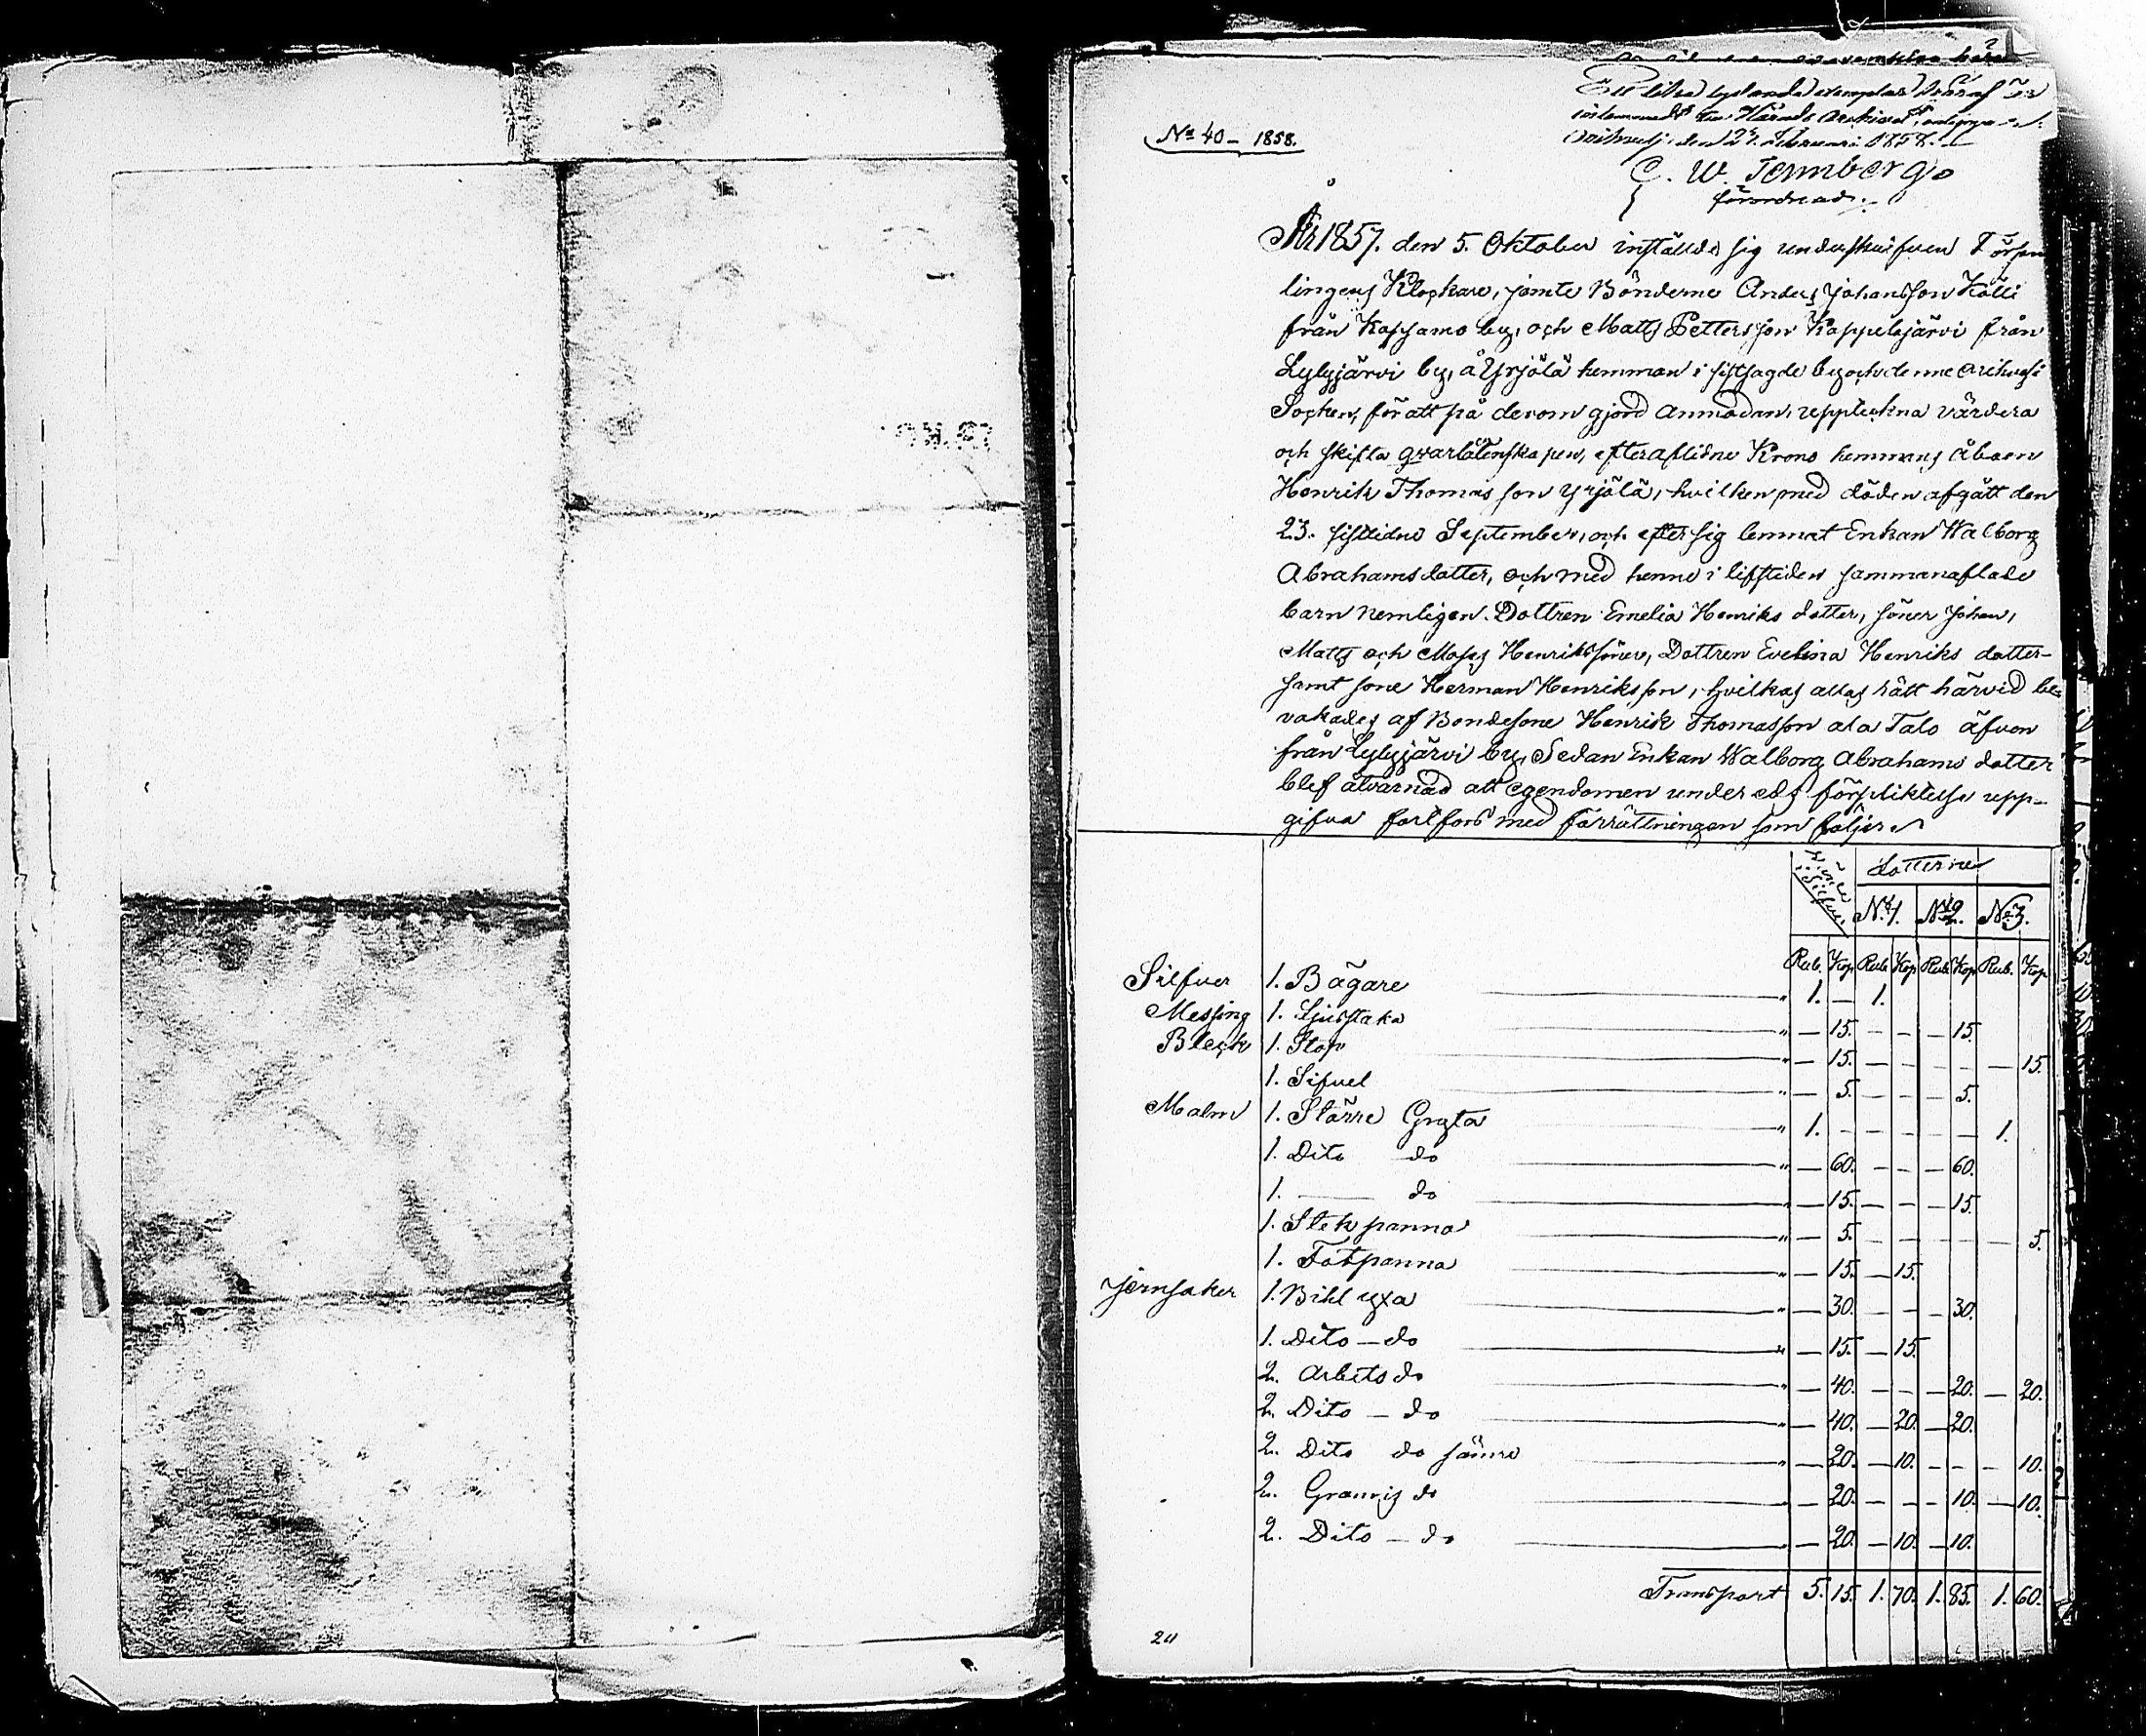 Ett lika lydande exemplar häraf är
inlemnadt till Härads Archivet, intygar
den 23. Februari 1858.
C. W. Ternberg
förordnad.
No 40 - 1858.
År 1857. den 5. Oktober instälde sig underskrifven Försam
lingens Klockare, jemte Bönderne Anders Johansson Kölli
från Kapsamo by, och Matts Pettersson Kappelsjärvi från
Lylyjärvi by, å Yrjölä hemman i sistsagde by och denne
Socken, för att på derom gjord anmodan, uppteckna värdera
och skifta qvarlåtenskapen, efter aflidne Krono hemmans åboen
Henrik Thomasson Yrjölä, hvilken med döden afgått den
23. sistlidne September, och efter sig lemnat Enkan Walborg
Abrahamsdotter, och med henne i lifstiden sammanaflade
barn nemligen. Dottren Emelia Henriks dotter, söner Johan,
Matts och Moses Henrikssöner, Dottren Evelina Henriks dotter
samt sone Herman Henriksson, hvilkas allas rätt härvid be-
vakades af Bondesone Henrik Thomasson ala Talo äfven
från Lylyjärvi by, Sedan Enkan Walborg Abrahams dotter
blef åtvarnad att egendomen under eds förpliktelse upp-
gifva fortfors med förrättningen som följer
Lotterne
Silfver No 1. No 2. No 3.
Rub. Kop Rub Kop Rub Kop Rub. Kop
Silfver 1. Bägare " 1. — 1.
Messing 1. Ljusstaka " — 15. — — — 15.
Bleck 1. Stop " — 15. — — — — — 15.
1. Sifvel " — 5. — — — 5.
Malm 1. Större Gryta " 1. — — — — — 1.
1. Dito do " — 60. — — — 60.
1. — do " — 15. — — — 15.
1. Stekpanna " — 5. — — — — — 5.
1. Fotpanna " — 15. — 15.
Jernsaker 1. Bihl yxa " — 30. — — — 30.
1. Dito — do " — 15. — 15.
2. Arbets do " — 40. — — — 20. — 20.
2. Dito — do " — 40. — 20. — 20.
2. Dito do sämre " — 20. — 10. — — — 10.
2. do " — 20. — — — 10. — 10.
2. Dito — do — 20. — 10. — 10.
Transport 5. 15. 1. 70. 1. 85. 1. 60.